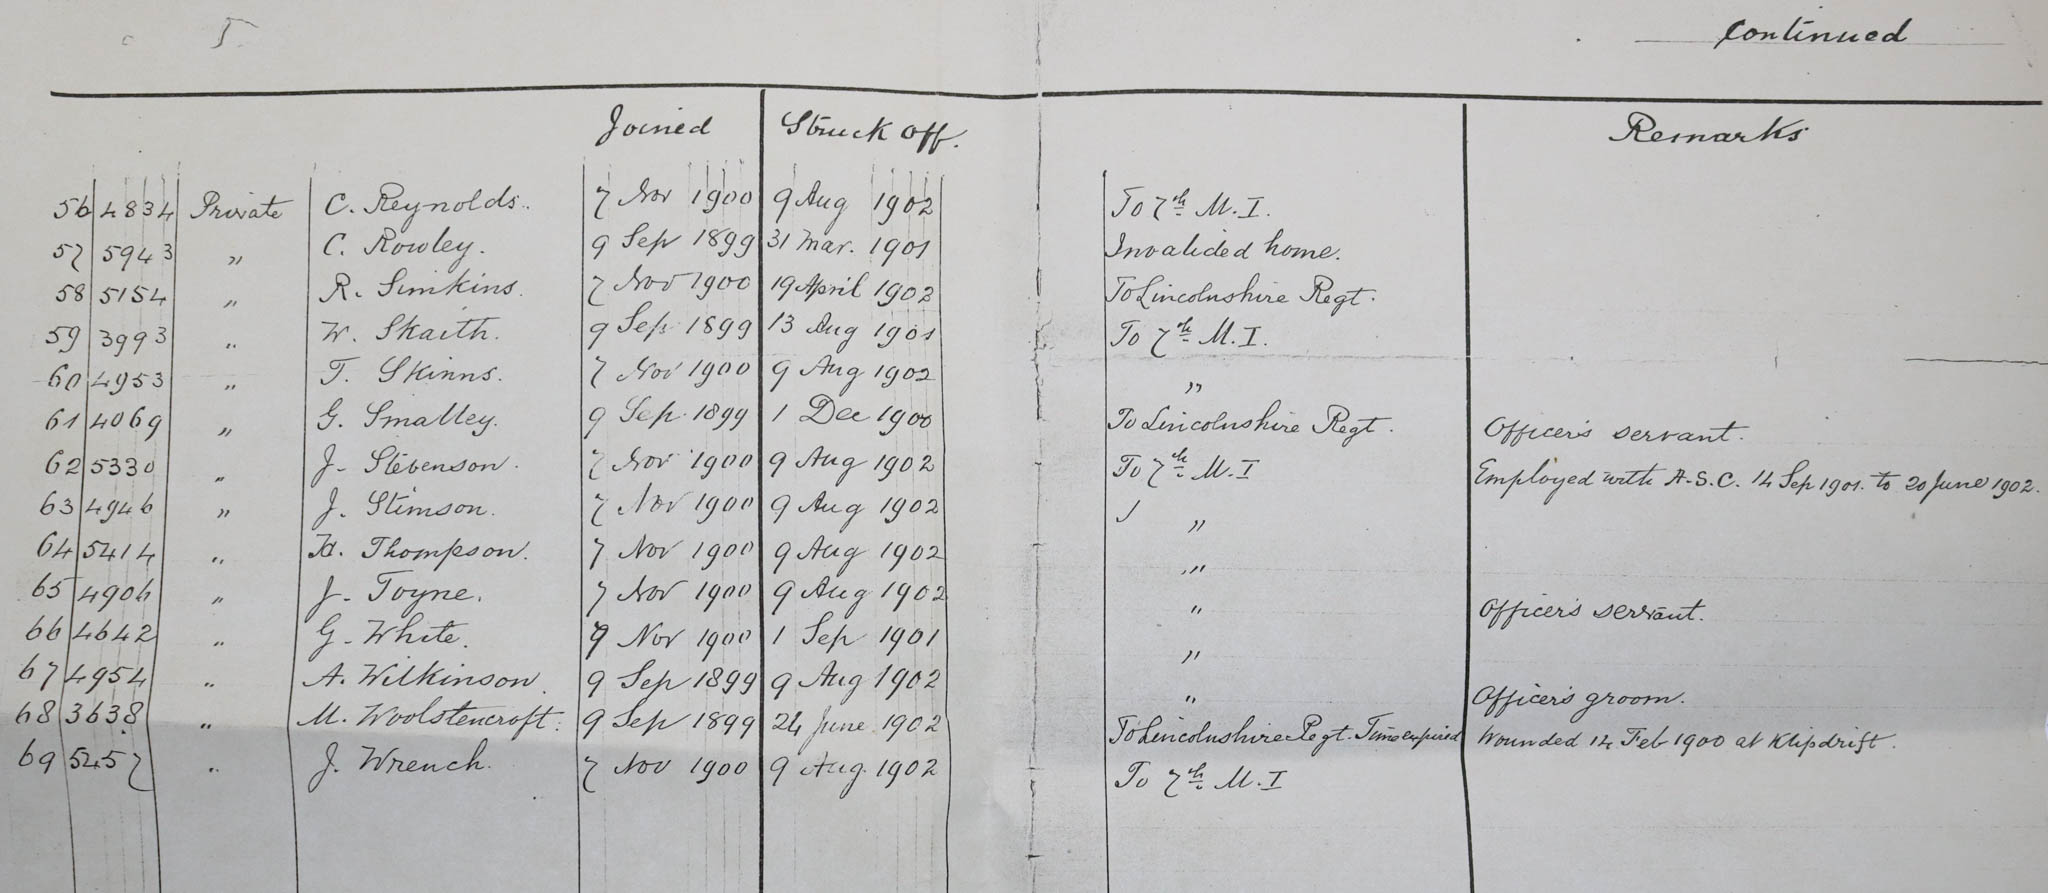 Continued
Joined Struck off. Remarks
56 4834 Private C. Reynolds. 7 Nov 1900 9 Aug 1902 To 7th M.I.
57 5943 " C. Rowley. 9 Sep 1899 31 Mar. 1901 Invalided home.
58 5154 " R. Simkins. 7 Nov 1900 19 April 1902 To Lincolnshire Regt.
59 3993 " W. Skaith. 9 Sep. 1899 13 Aug 1901 To 7th M.I.
60 4953 " T. Skinns. 7 Nov 1900 9 Aug 1902 "
61 4069 " G. Smalley. 9 Sep. 1899 1 Dec 1900 To Lincolnshire Regt. Officer's servant.
62 5330 " J. Stevenson. 7 Nov 1900 9 Aug 1902 To 7th M.I Employed with A.S.C. 14 Sep 1901. to 20 June 1902.
63 4946 " J. Stimson. 7 Nov 1900 9 Aug 1902 "
64 5414 " H. Thompson. 7 Nov 1900 9 Aug 1902 "
65 4906 " J. Toyne. 7 Nov 1900 9 Aug 1902 " Officer's servant.
66 4642 " G. White. 7 Nov 1900 1 Sep 1901 "
67 4954 " A. Wilkinson. 9 Sep 1899 9 Aug 1902 " Officer's groom.
68 3638 " M. Woolstencroft. 9 Sep 1899 24 June 1902 To Lincolnshire Regt. Time expired Wounded 14 Feb 1900 at Klipdrift.
69 5457 " J. Wrench. 7 Nov 1900 9 Aug. 1902 To 7th M.I